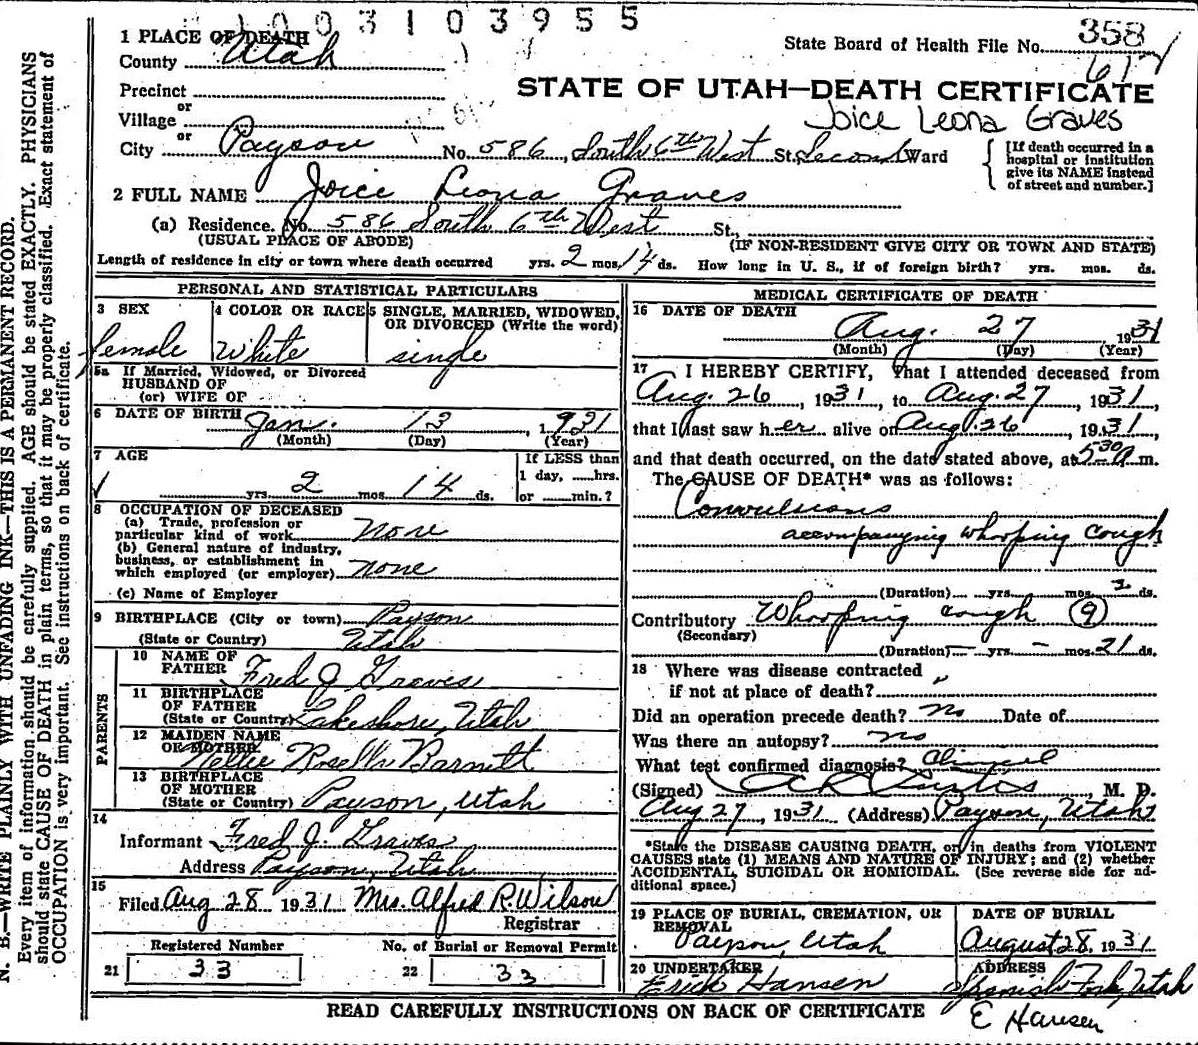 1003103955
358
617
State Board of Health File No.
1 PLACE OF DEATH
County Utah
STATE OF UTAH—DEATH CERTIFICATE
Joice Leona Graves
Precinct
or
Village
or
City Payson No. 586, South 6th West St. Second Ward
[If death occurred in a hospital or institution give its NAME instead of street and number.]
2 FULL NAME Joice Leona Graves
(a) Residence. No. 586 South 6th West St.,
(USUAL PLACE OF ABODE) (IF NON-RESIDENT GIVE CITY OR TOWN AND STATE)
Length of residence in city or town where death occurred yrs. 2 mos. 14 ds. How long in U. S., if of foreign birth? yrs. mos. ds.
PERSONAL AND STATISTICAL PARTICULARS
3 SEX 4 COLOR OR RACE 5 SINGLE, MARRIED, WIDOWED,
OR DIVORCED (Write the word)
female White single
5a If Married, Widowed, or Divorced
HUSBAND OF
(or) WIFE OF
6 DATE OF BIRTH Jan. 13, 1931
(Month) (Day) (Year)
7 AGE If LESS than
1 day, hrs.
yrs. 2 mos. 14 ds. or min.?
8 OCCUPATION OF DECEASED
(a) Trade, profession or
particular kind of work none
(b) General nature of industry,
business, or establishment in
which employed (or employer) none
(c) Name of Employer
9 BIRTHPLACE (City or town) Payson
(State or Country) Utah
PARENTS
10 NAME OF
FATHER Fred J Graves
11 BIRTHPLACE
OF FATHER
(State or Country) Lakeshore, Utah
12 MAIDEN NAME
OF MOTHER
Nellie Rosella Barnett
13 BIRTHPLACE
OF MOTHER
(State or Country) Payson, Utah
14
Informant Fred J. Graves
Address Payson, Utah
15
Filed Aug 28 1931 Mrs. Alfred R. Wilson
Registrar
Registered Number No. of Burial or Removal Permit
21 33 22 33
MEDICAL CERTIFICATE OF DEATH
16 DATE OF DEATH
Aug. 27 1931
(Month) (Day) (Year)
17 I HEREBY CERTIFY, That I attended deceased from
Aug. 26, 1931, to Aug. 27, 1931,
that I last saw her alive on Aug. 26, 1931,
and that death occurred, on the date stated above, at 5-30 a m.
The CAUSE OF DEATH* was as follows:
Convulsions
accompanying whooping cough
(Duration) yrs. mos. ds.
Contributory Whooping cough (9)
(Secondary)
(Duration) — yrs. — mos. 21 ds.
18 Where was disease contracted
if not at place of death?
Did an operation precede death? no Date of
Was there an autopsy? no
What test confirmed diagnosis? Clinical
(Signed) , M. D.
Aug 27, 1931 (Address) Payson, Utah
*State the DISEASE CAUSING DEATH, or in deaths from VIOLENT
CAUSES state (1) MEANS AND NATURE OF INJURY; and (2) whether
ACCIDENTAL, SUICIDAL OR HOMICIDAL. (See reverse side for ad-
ditional space.)
19 PLACE OF BURIAL, CREMATION, OR
REMOVAL
Payson, Utah
DATE OF BURIAL
August 28, 1931
20 UNDERTAKER
Erick Hansen
ADDRESS
Spanish Fork, Utah
E Hansen
READ CAREFULLY INSTRUCTIONS ON BACK OF CERTIFICATE
N. B.—WRITE PLAINLY WITH UNFADING INK—THIS IS A PERMANENT RECORD.
Every item of information should be carefully supplied. AGE should be stated EXACTLY. PHYSICIANS
should state CAUSE OF DEATH in plain terms, so that it may be properly classified. Exact statement of
OCCUPATION is very important. See instructions on back of certificate.